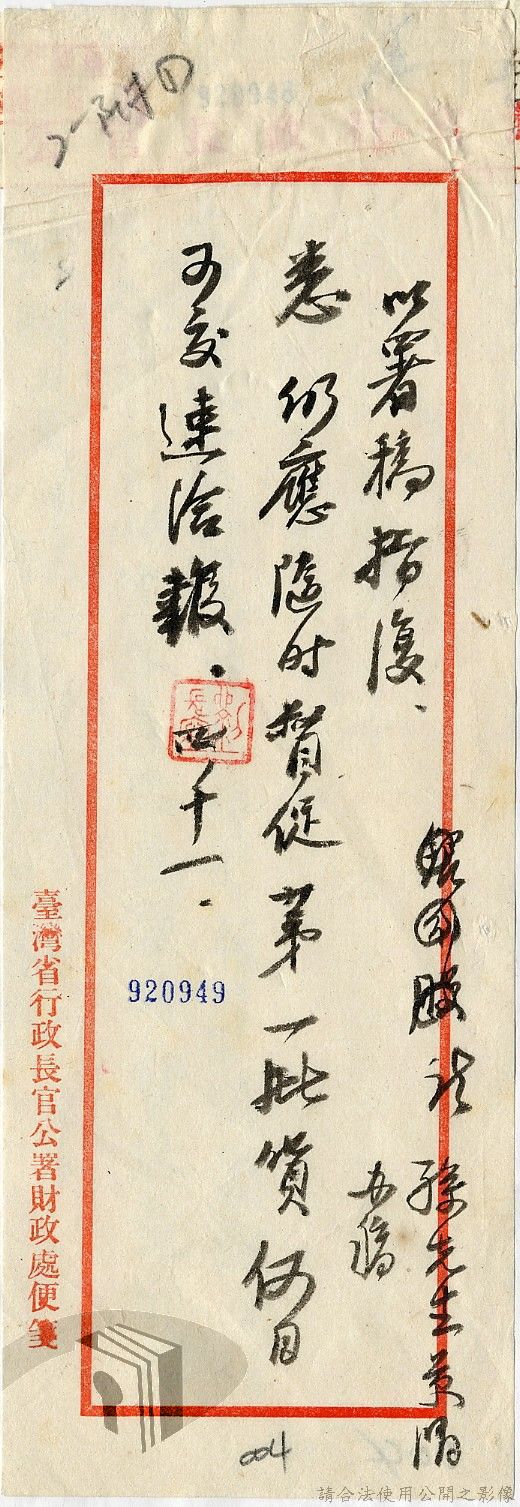 2-附①
以署稿指復、
悉 仍應隨时督促第一批貨何日
可交速洽報.
四、十一.
股 孫先生
办稿
920949
臺灣省行政長官公署財政處便箋
004
請合法使用公開之影像